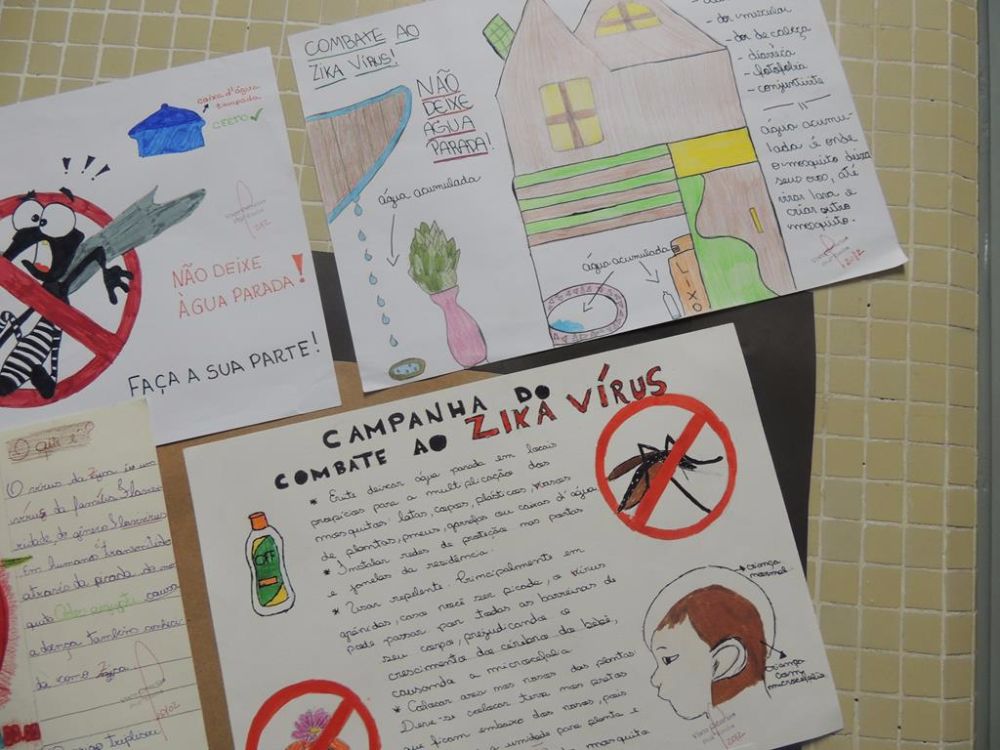 COMBATE AO
ZIKA VÍRUS!
NÃO
DEIXE
ÁGUA
PARADA!
água acumulada
água acumulada
LIXO
- dor muscular
- dor de cabeça
- diarréia
- fotofobia
- conjuntivite
água acumu-
lada é onde
o mosquito deixa
seus ovos, até
virar larva e
criar outro
mosquito.
caixa d'água
tampada
CERTO
NÃO DEIXE
ÀGUA PARADA!
FAÇA A SUA PARTE!
O que é?
O vírus da Zyca é um
vírus da família
do gênero
Em humanos é transmitido
através da picada do mos
quito causa
a doença também conheci
da como Zyca
CAMPANHA DO
COMBATE AO ZIKA VÍRUS
* Evite deixar água parada em locais
propícios para a multiplicação dos
mosquitos: latas, copos, plásticos, vasos
de plantas, pneus, garrafas ou caixas d'água
* Instalar redes de proteção nas portas
e janelas da residência.
* Usar repelente principalmente em
grávidas, caso você ser picada, o vírus
pode passar por todas as barreiras de
seu corpo, prejudicando o
crescimento do cérebro do bebê,
causando a microcefalia
* Colocar areia nos vasos das plantas
Deve-se colocar terra nos pratos
que ficam embaixo dos vasos, pois
a umidade para planta e
mosquito
OFF
criança
normal
criança
com
microcefalia